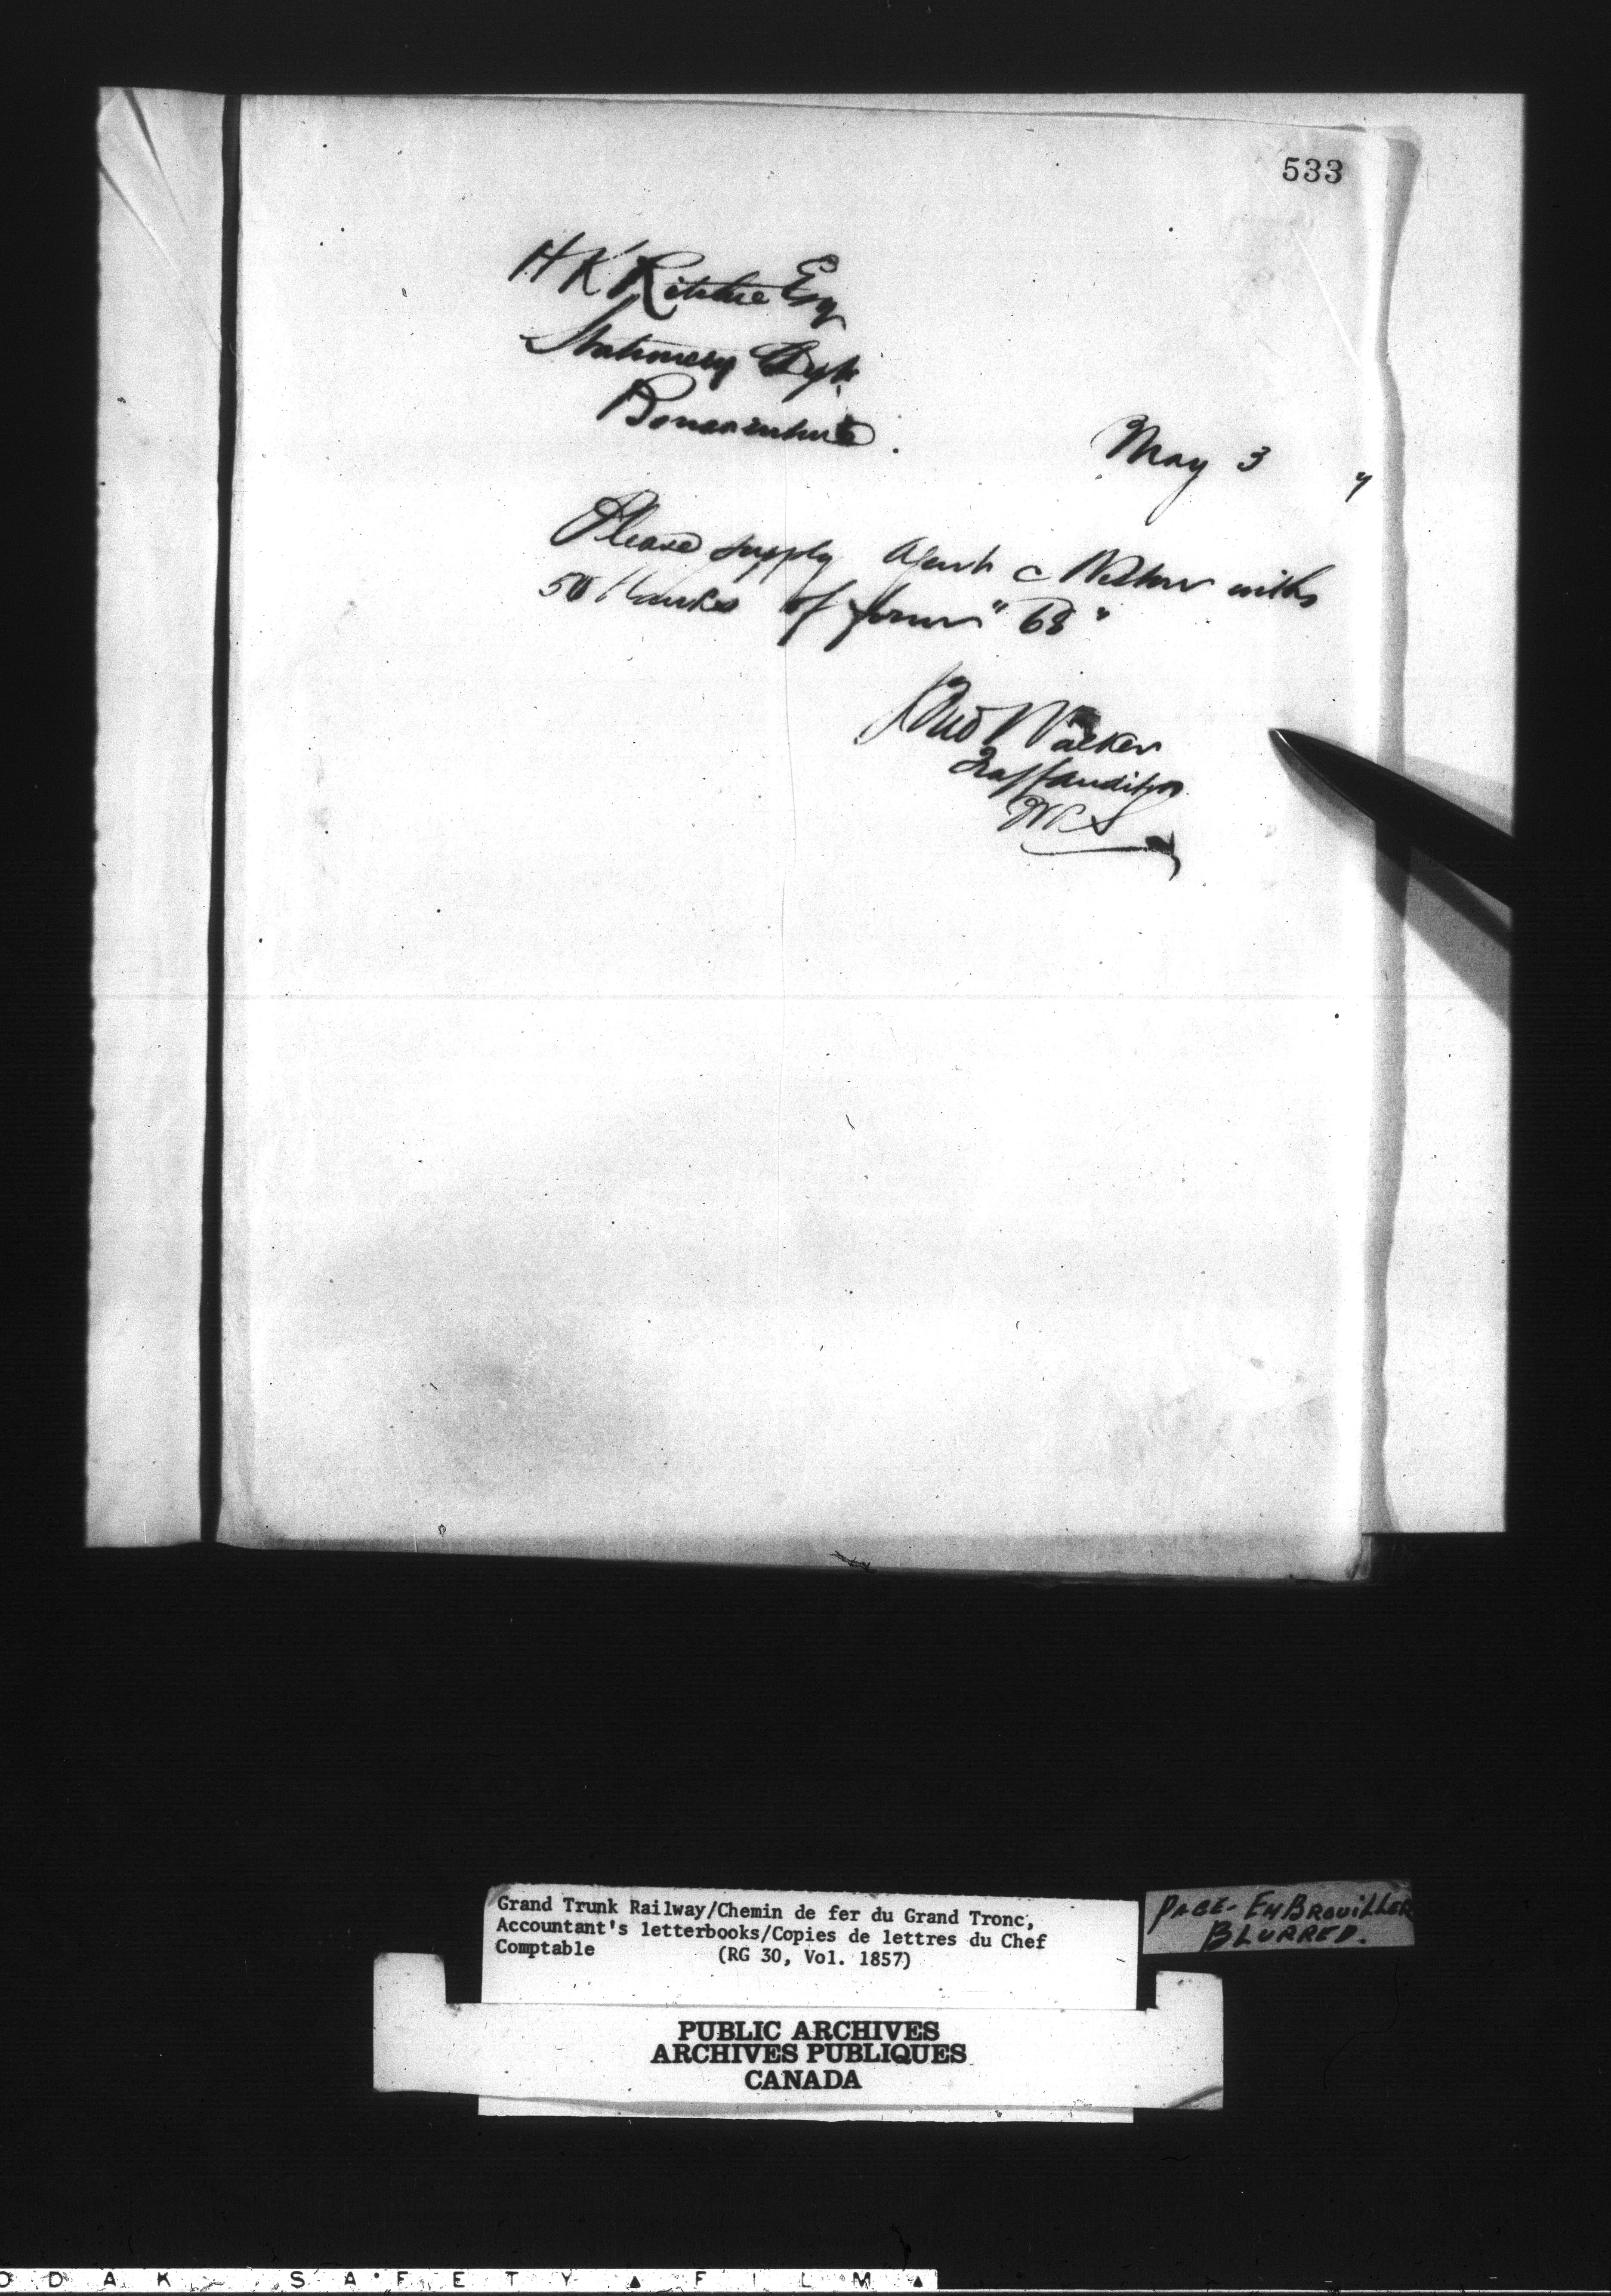 533
H K Ritchie Esq
Stationery Dept.
Bonaventure.
May 3
Please supply Agent with
50 blanks of form "68"
Walker
Traff Auditor
Grand Trunk Railway/Chemin de fer du Grand Tronc,
Accountant's letterbooks/Copies de lettres du Chef
Comptable (RG 30, Vol. 1857)
PAGE- EMBROUILLER
BLURRED.
PUBLIC ARCHIVES
ARCHIVES PUBLIQUES
CANADA
ODAK SAFETY FILM